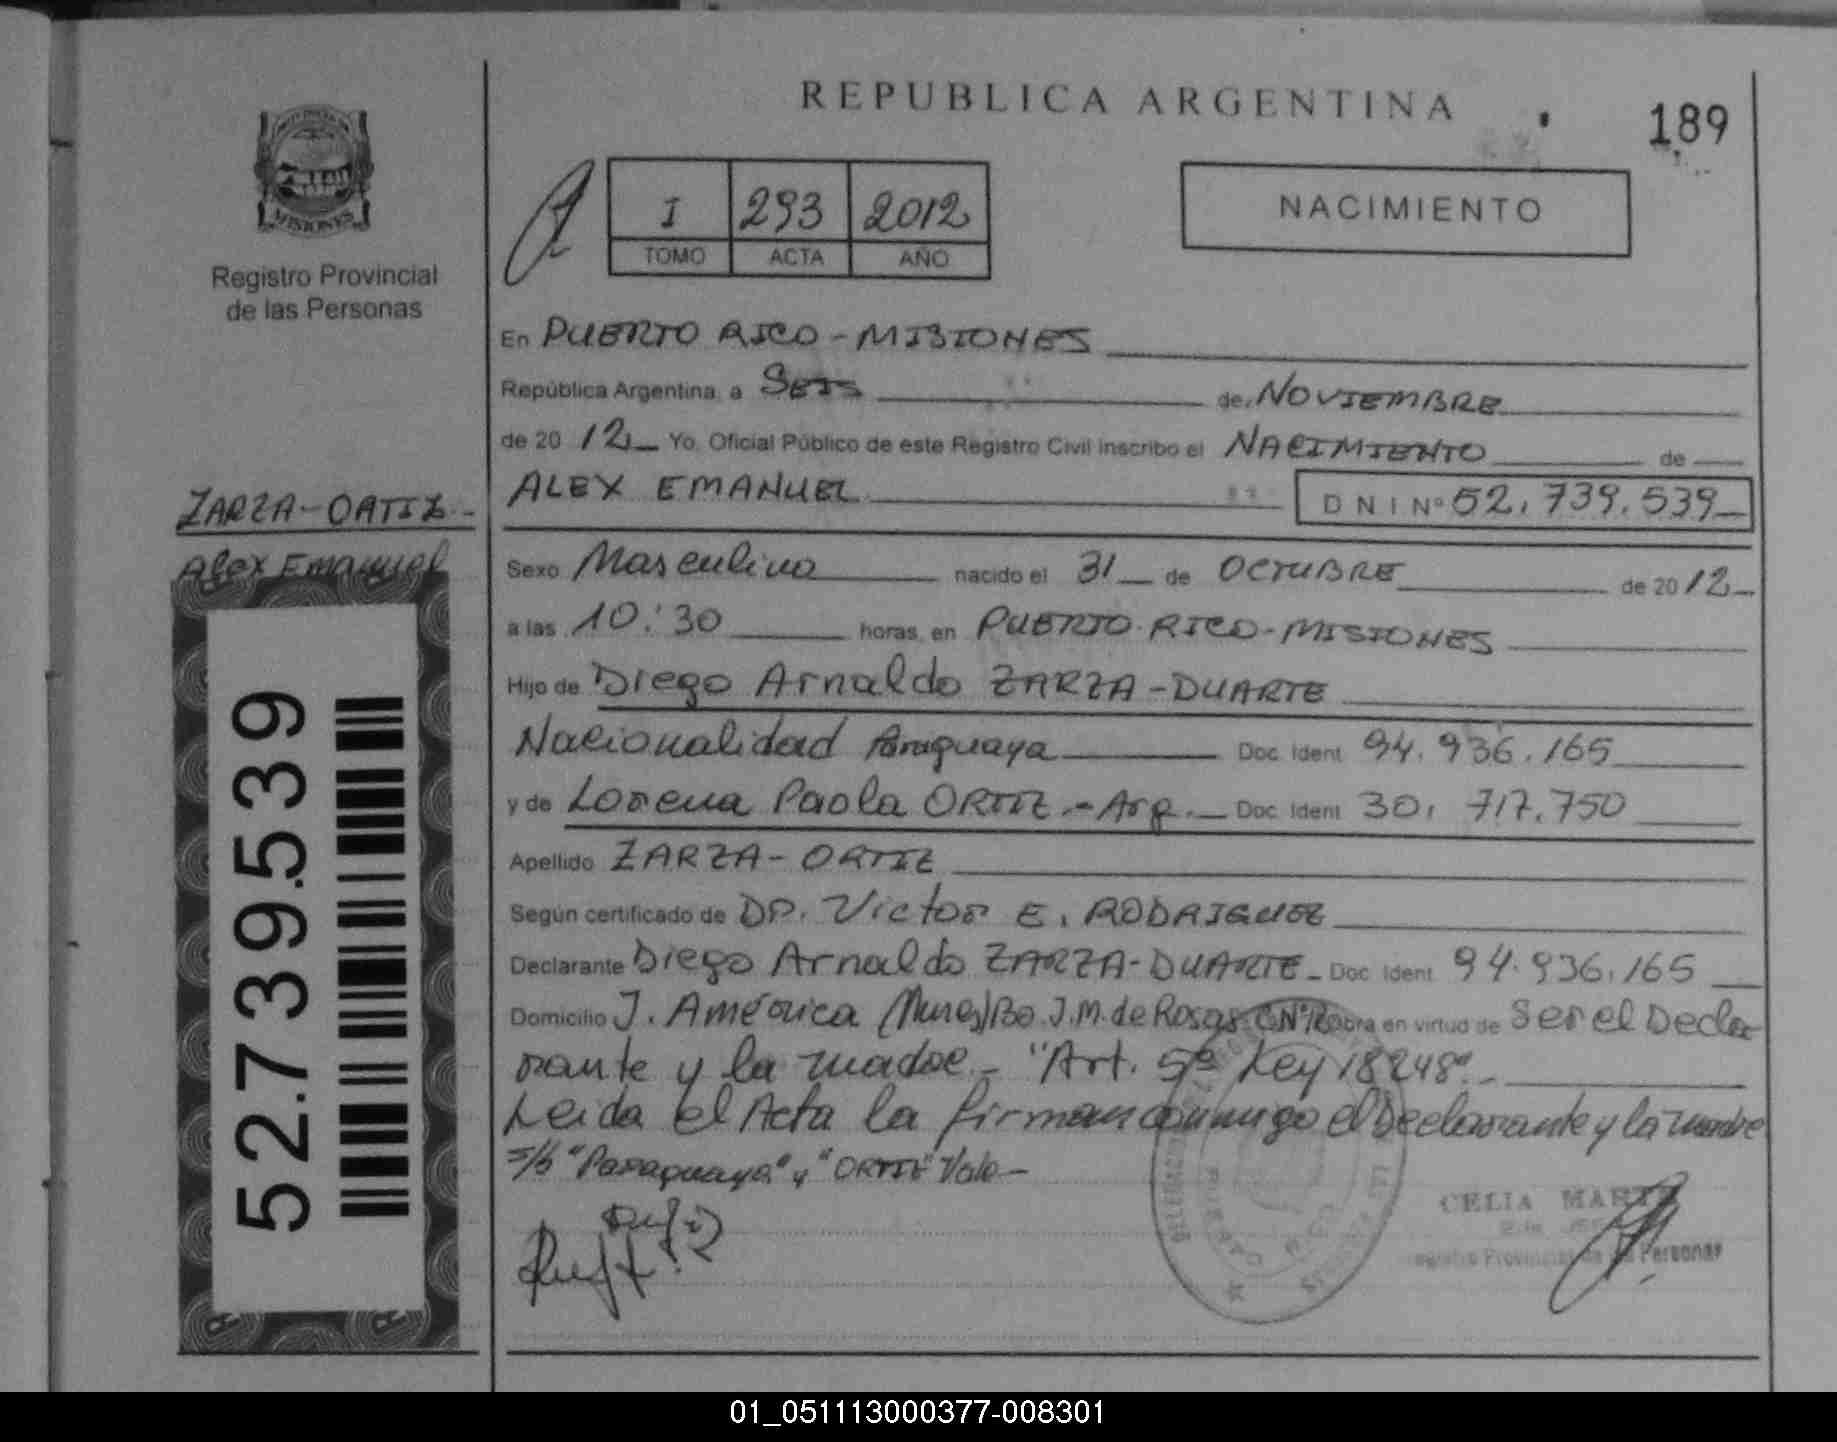 REPUBLICA ARGENTINA
189
MISIONES
Registro Provincial
de las Personas
I 293 2012
TOMO ACTA AÑO
NACIMIENTO
En PUERTO RICO - MISIONES
República Argentina, a SEIS de NOVIEMBRE
de 20 12 Yo, Oficial Público de este Registro Civil inscribo el NACIMIENTO de
ALEX EMANUEL DNI Nº 52.739.539
ZARZA-ORTIZ.-
Alex Emanuel
Sexo Masculino nacido el 31 de OCTUBRE de 20 12
a las 10:30 horas, en PUERTO RICO-MISIONES
Hijo de Diego Arnaldo ZARZA-DUARTE
Nacionalidad Paraguaya Doc. Ident. 94.936.165
y de Lorena Paola ORTIZ.-Arg.- Doc. Ident. 30.717.750
Apellido ZARZA-ORTIZ
Según certificado de DR. Victor E. RODRIGUEZ
Declarante Diego Arnaldo ZARZA-DUARTE Doc. Ident. 94.936.165
Domicilio J. América Bo. J.M. de Rosas obra en virtud de Ser el Decla
rante y la madre.- "Art. 5º Ley 18248".-
Leida el Acta la firman conmigo el Declarante y la madre
S/b "Paraguaya" y "ORTIZ" Vale-
CELIA
Registro Provincial de las Personas
52.739.539
01_051113000377-008301